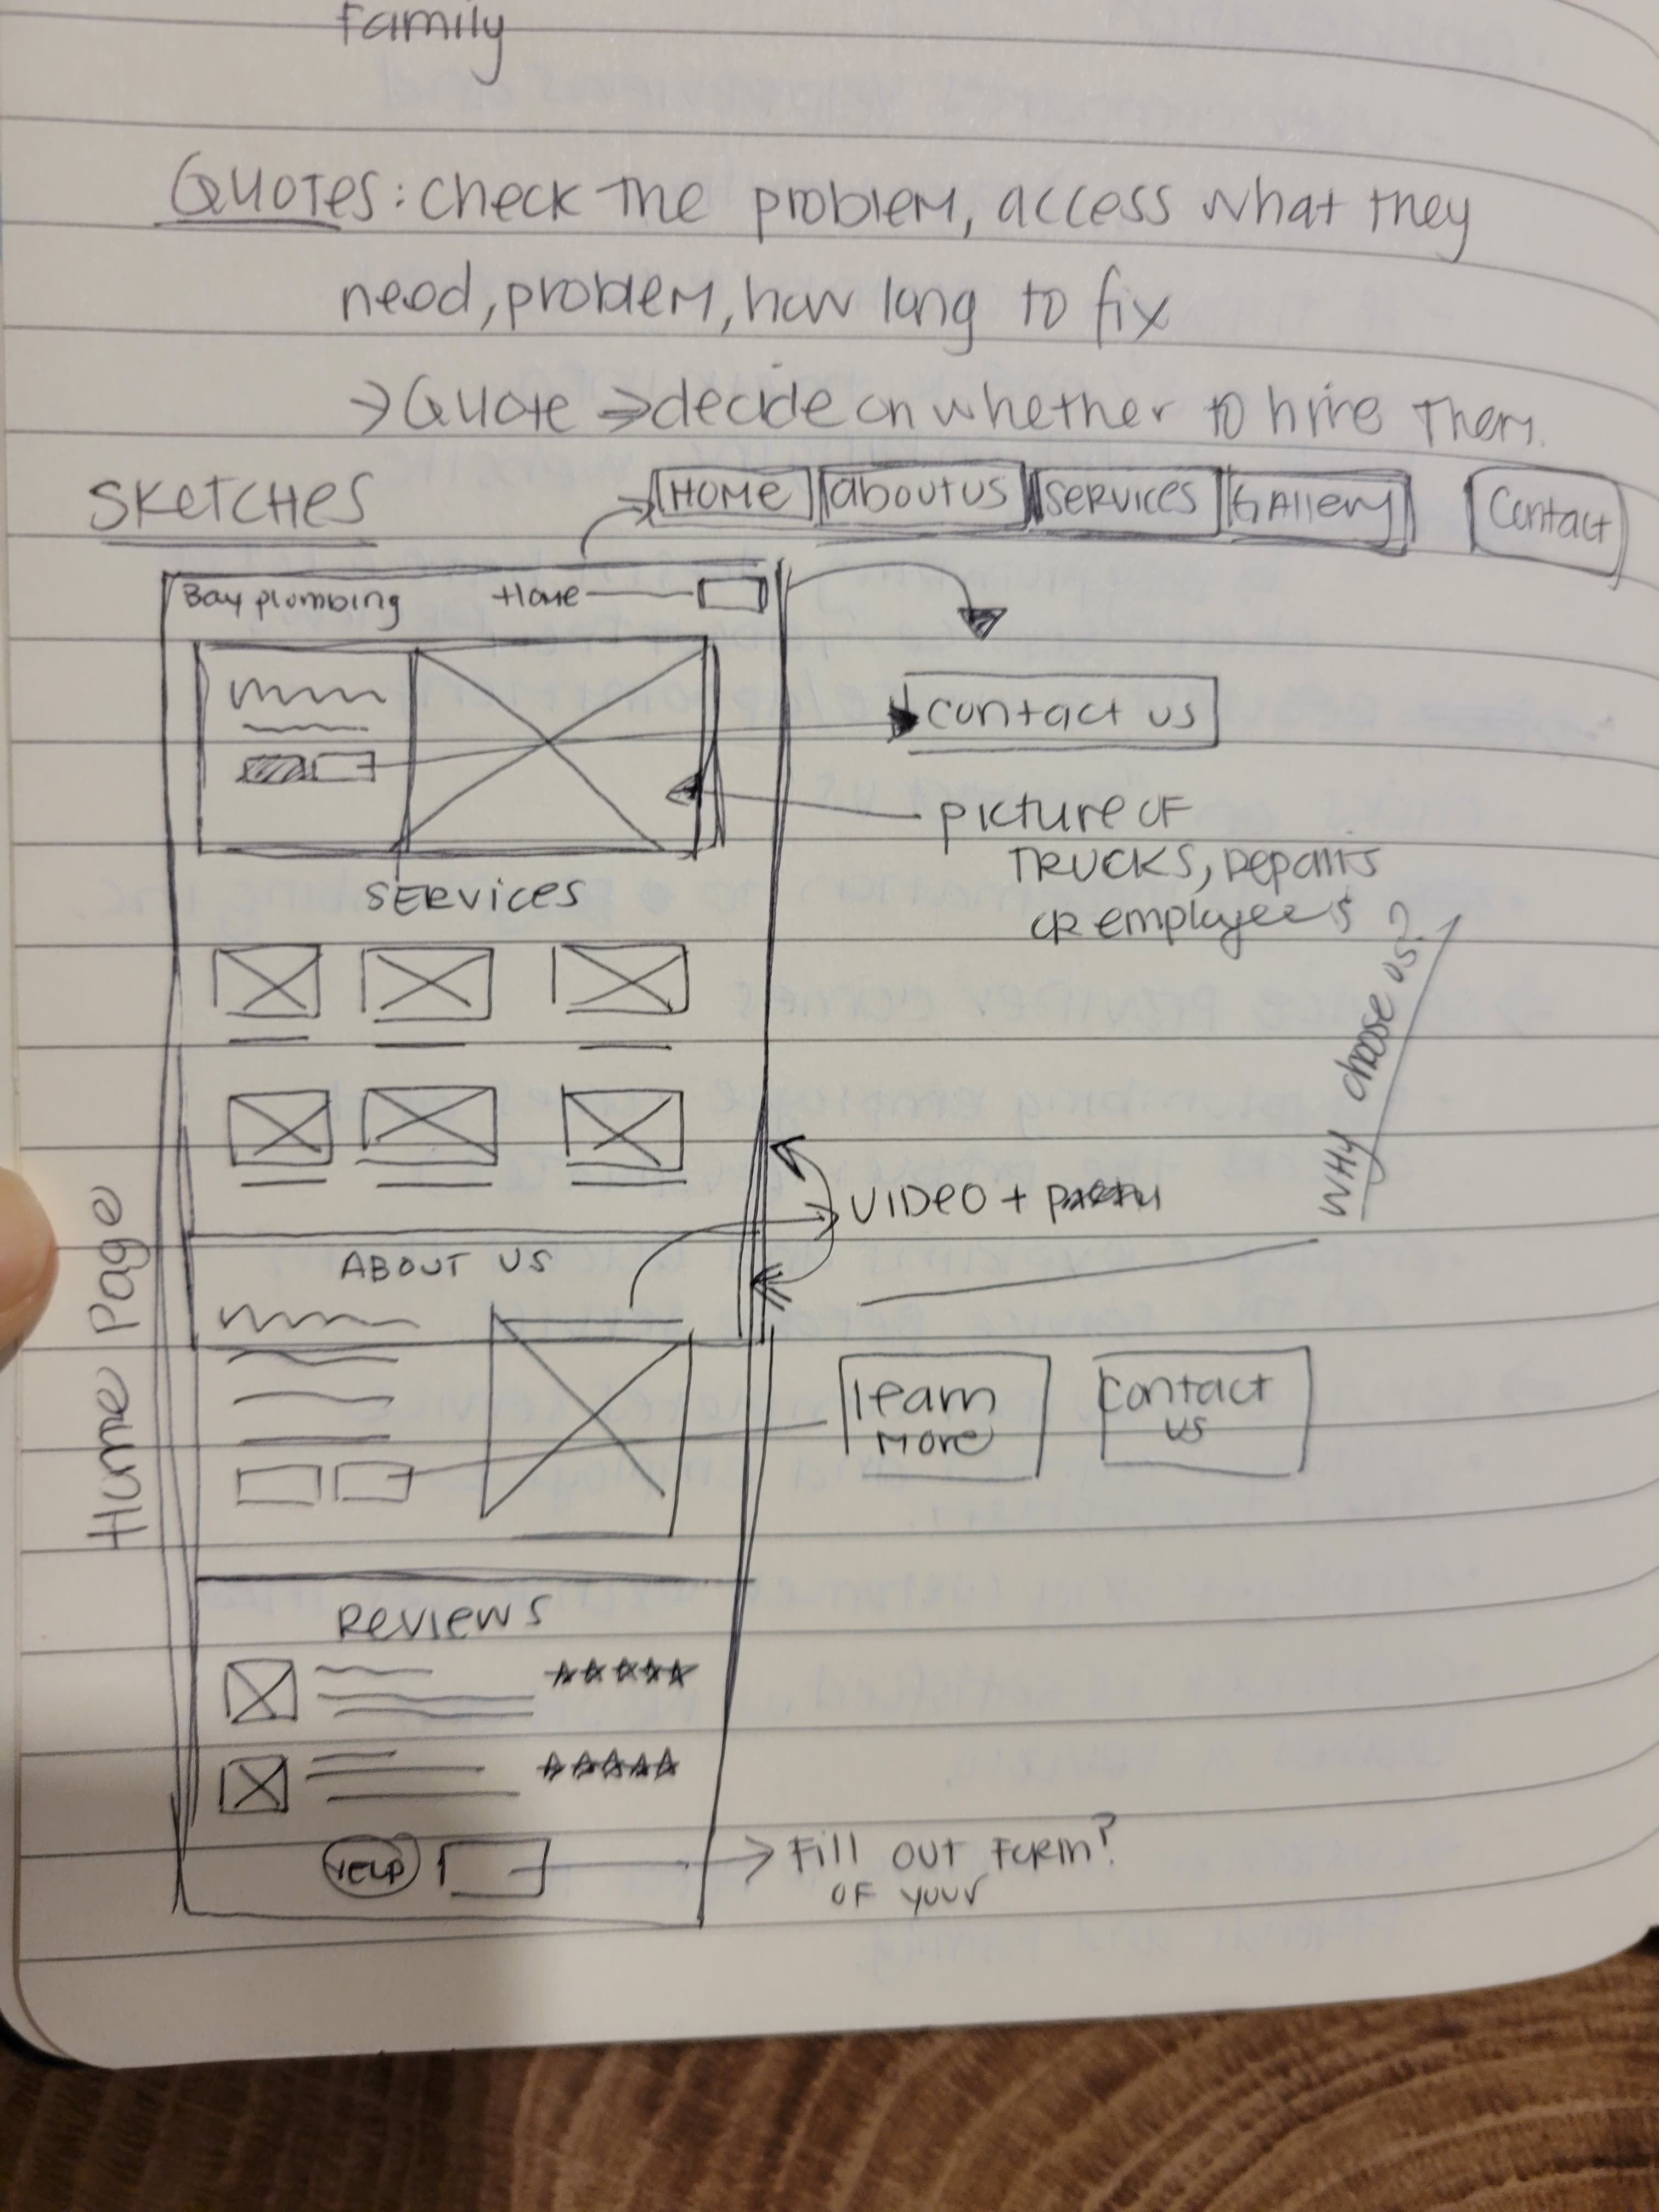 Family
QUOTES: check the problem, access what they
need, problem, how long to fix
→ Quote ⇒ decide on whether to hire them.
SKETCHES
HOME about us SERVICES GAllery Contact
Bay plumbing Home
contact us
picture of
TRUCKS, repairs
or employees
SERVICES
WHY choose us?
VIDEO +
ABOUT US
Home Page
learn
more
contact
us
Reviews
YELP
Fill out form?
of your